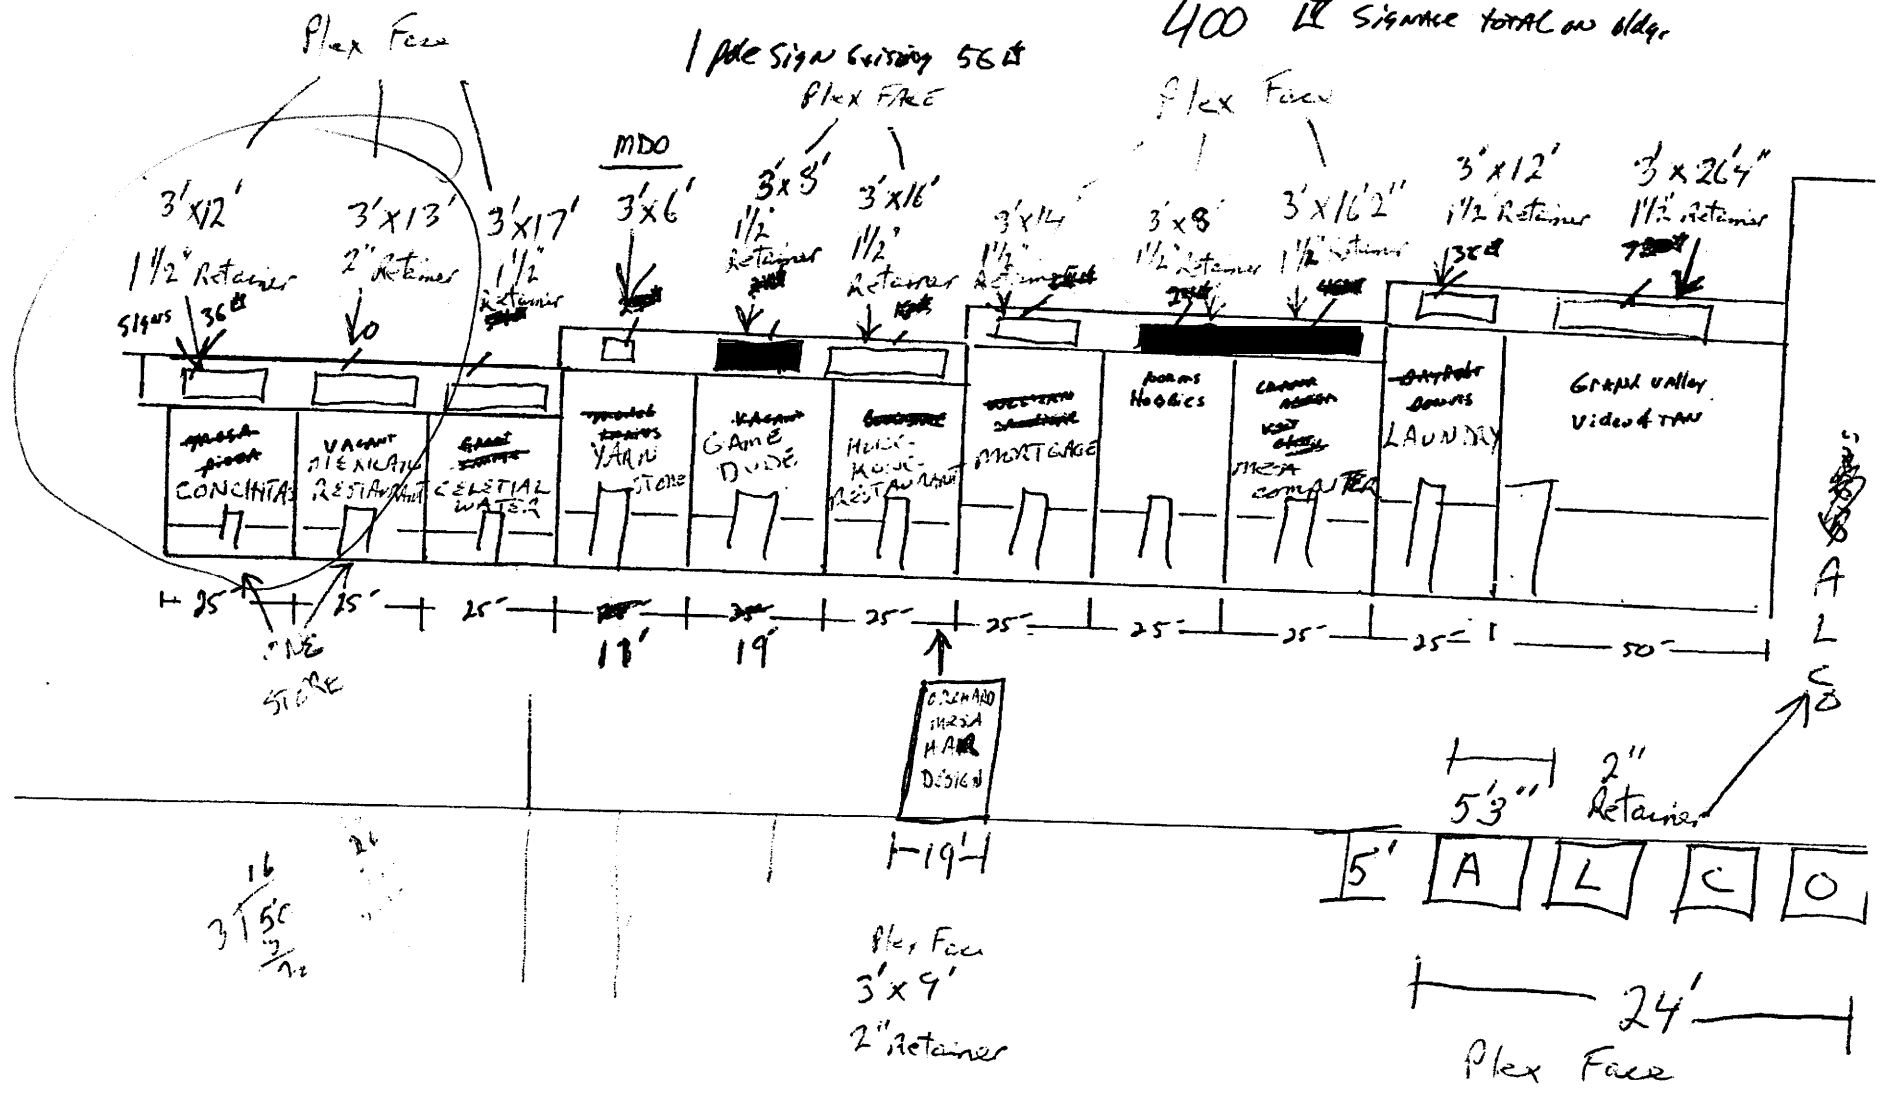 Plex Face
1 pole sign Existing 56
400 signage total on bldg.
Plex FACE
Plex Face
MDO
3'x12'
1 1/2" Retainer
signs
36
3'x13'
2" Retainer
0
3'x17'
1 1/2"
Retainer
3'x6'
3'x8'
1 1/2"
Retainer
3'x16'
1 1/2"
Retainer
3'x14'
1 1/2"
3'x8'
1 1/2" Retainer
3'x16'2"
1 1/2" Retainer
3'x12'
1 1/2" Retainer
3'x26'4"
1 1/2" Retainer
CONCHITAS
VACANT
MEXICAN
RESTAURANT
CELESTIAL
WATER
YARN
STORE
VACANT
GAME
DUDE
HONG
KONG
RESTAURANT
MORTGAGE
NORMS
HOBBIES
MESA
COMPUTER
DONUTS
LAUNDRY
GRAND VALLEY
VIDEO & TAN
A
L
C
O
25'
25'
25'
18'
19'
25'
25'
25'
25'
25'
50'
ONE
STORE
ORCHARD
MESA
HAIR
DESIGN
19'
Plex Face
3'x9'
2" Retainer
16
3
26
5'3"
2"
Retainer
5'
A L C O
24'
Plex Face